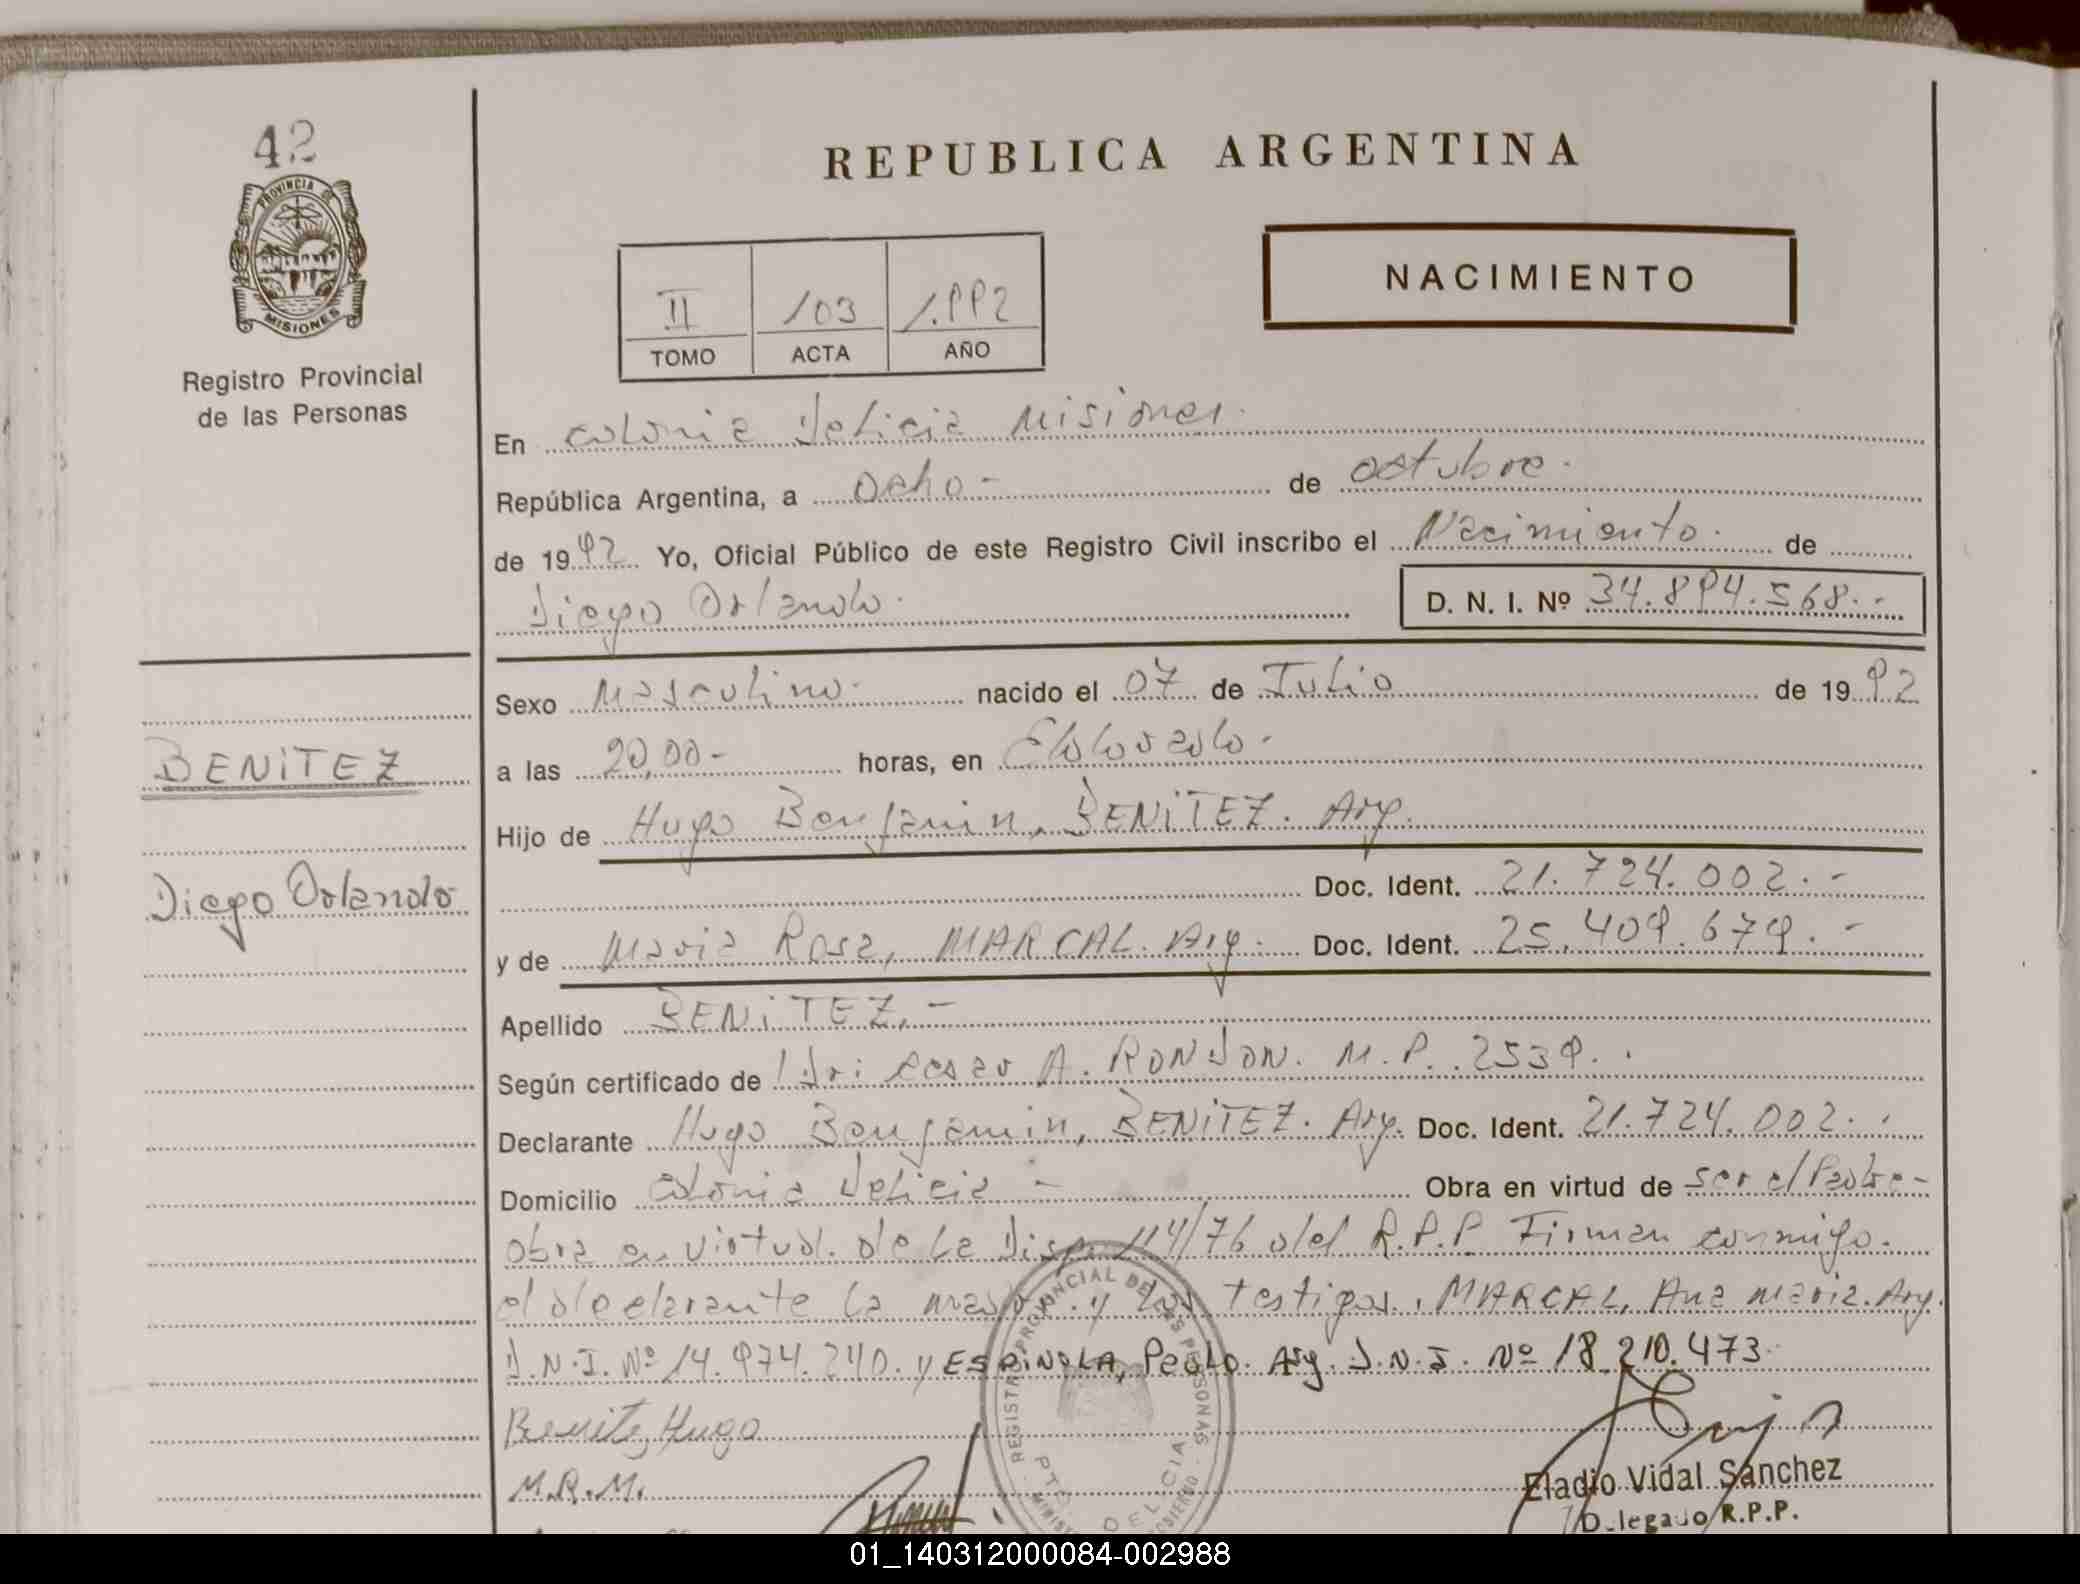 42
PROVINCIA DE
MISIONES
Registro Provincial
de las Personas
REPUBLICA ARGENTINA
NACIMIENTO
II 103 1.992
TOMO ACTA AÑO
En colonia Delicia Misiones.
República Argentina, a ocho - de octubre.
de 1992 Yo, Oficial Público de este Registro Civil inscribo el Nacimiento. de
Diego Orlando. D. N. I. Nº 34.894.568.-
Sexo Masculino. nacido el 07 de Julio de 1992
a las 20,00- horas, en Eldorado.
BENITEZ
Hijo de Hugo Benjamin, BENITEZ. Arg.
Doc. Ident. 21.724.002.-
Diego Orlando
y de Maria Rosa, MARCAL. Arg. Doc. Ident. 25.409.679.-
Apellido BENITEZ.-
Según certificado de Dr: Cesar A. RONDON. M.P. 2539.
Declarante Hugo Benjamin, BENITEZ. Arg. Doc. Ident. 21.724.002.
Domicilio colonia Delicia - Obra en virtud de ser el Padre-
obra en virtud. de la Disp. 114/76 del R.P.P. Firman conmigo.
el declarante la madre. y los testigos. MARCAL, Ana maria. Arg.
D.N.I. Nº 14.974.240. y ESPINDOLA, Pedro. Arg. D.N.I. Nº 18.210.473
Benitez Hugo
M.R.M.
REGISTRO PROVINCIAL DE LAS PERSONAS
Eladio Vidal Sánchez
Delegado R.P.P.
01_140312000084-002988